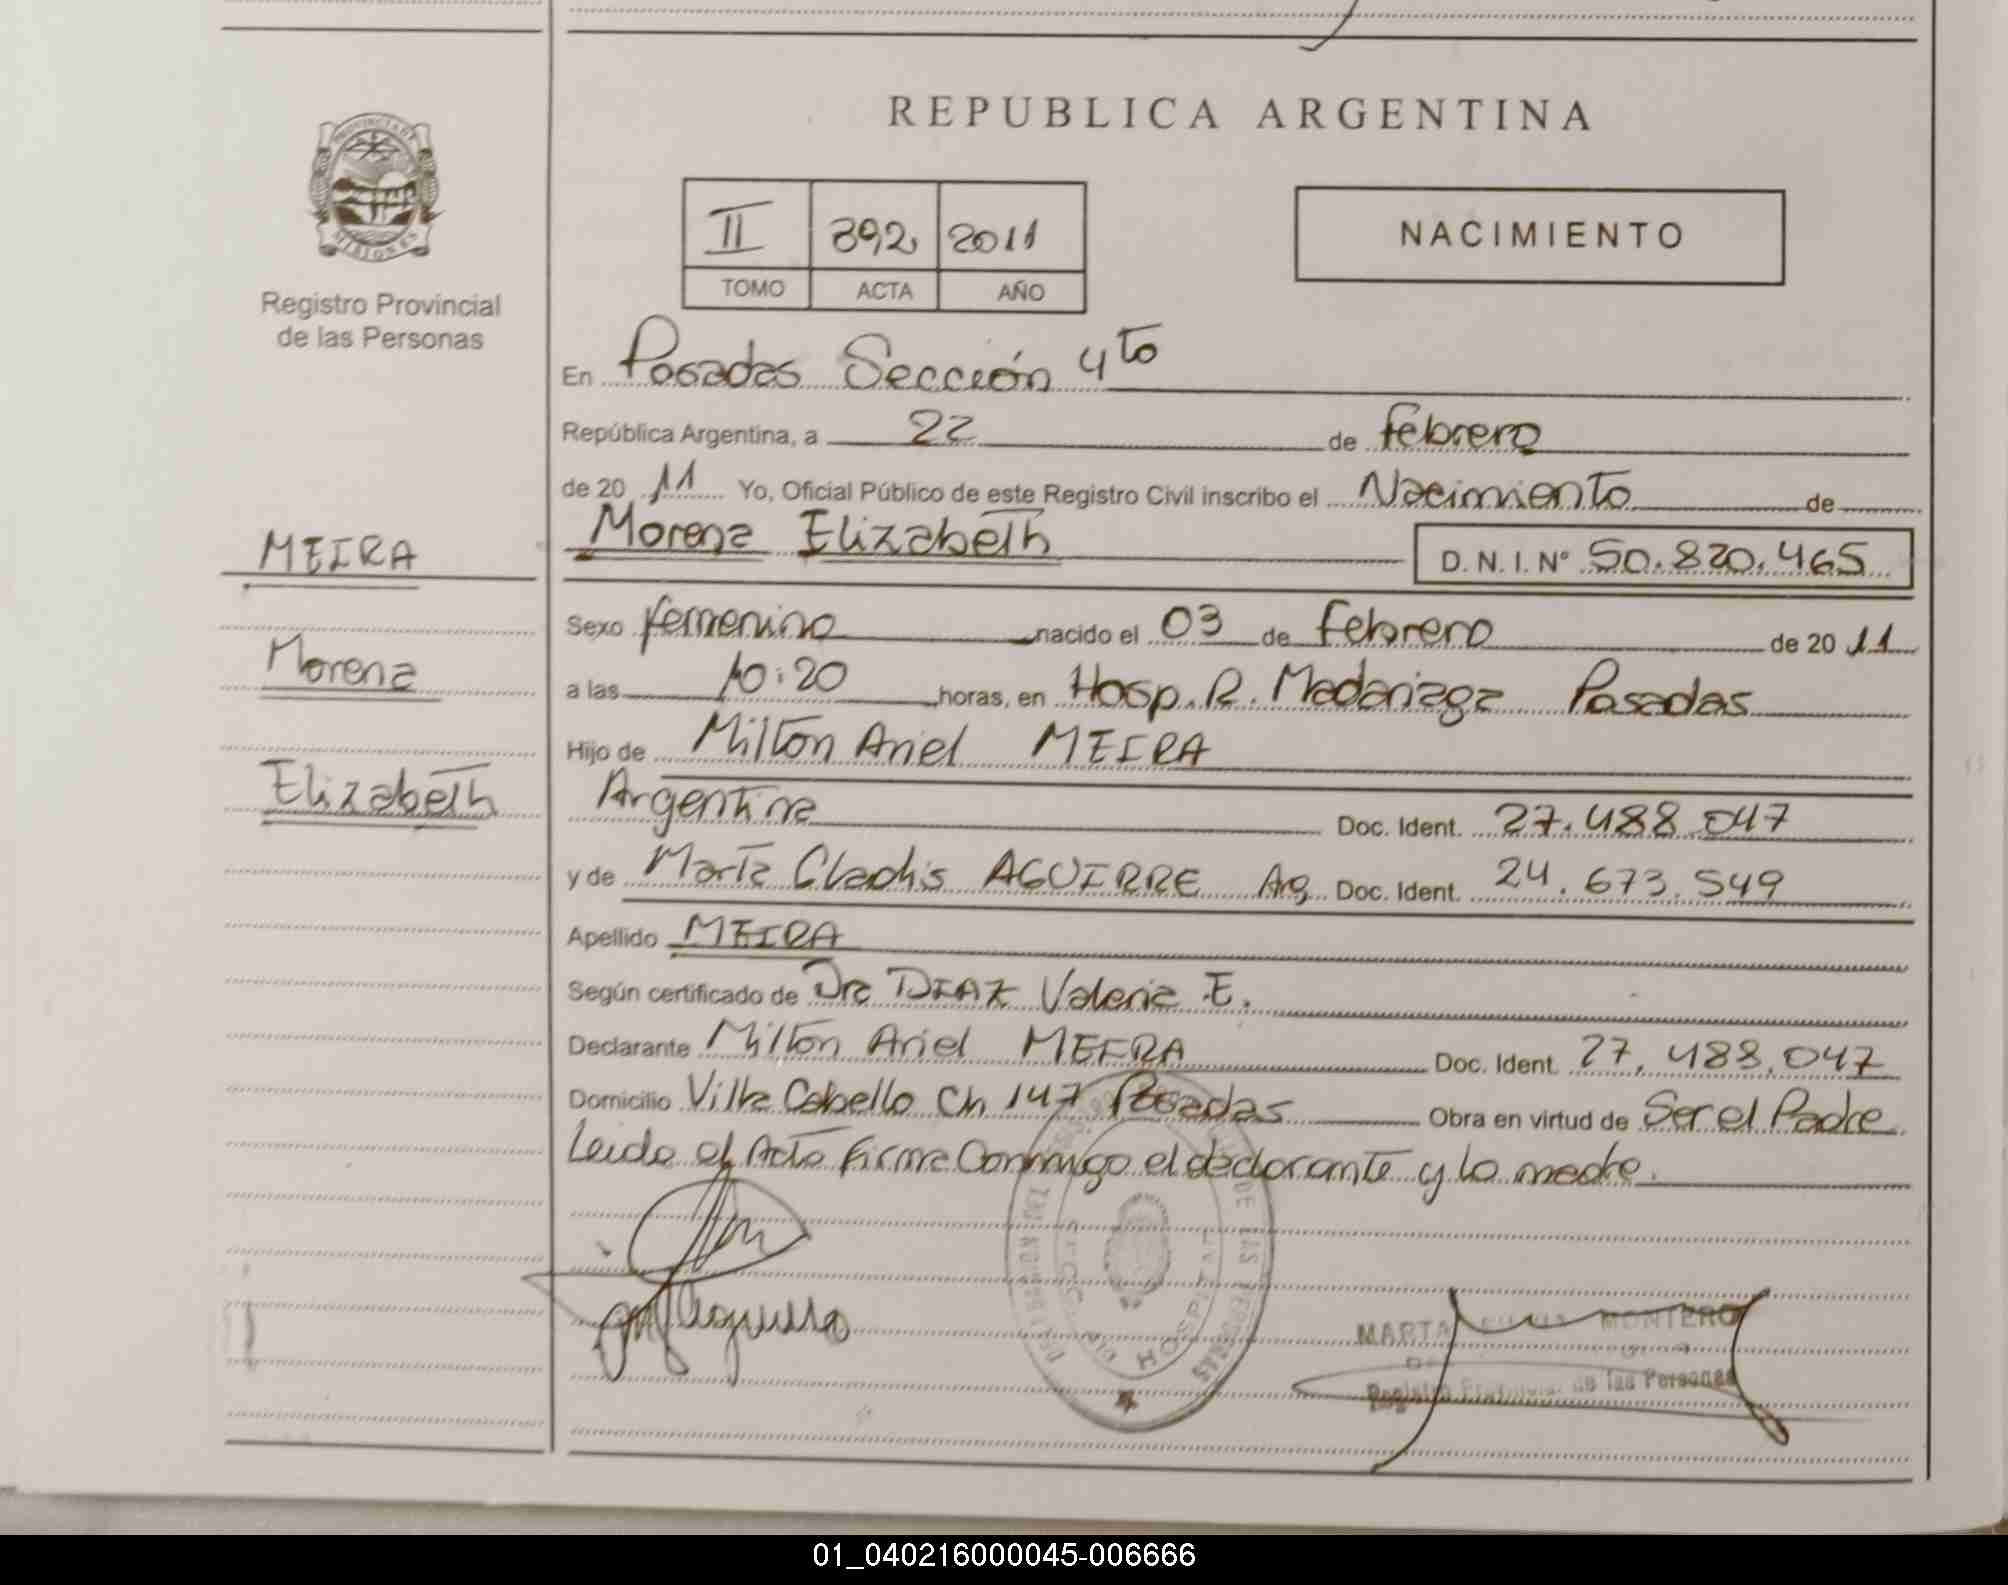 REPUBLICA ARGENTINA
PROVINCIA DE
MISIONES
Registro Provincial
de las Personas
II 392 2011
TOMO ACTA AÑO
NACIMIENTO
En Posadas Sección 4to
República Argentina, a 22 de febrero
de 20 11 Yo, Oficial Público de este Registro Civil inscribo el Nacimiento de
Morena Elizabeth D. N. I. Nº 50.820.465
MEIRA
Morena
Elizabeth
Sexo femenino nacido el 03 de febrero de 20 11
a las 10:20 horas, en Hosp. R. Madariaga Posadas
Hijo de Milton Ariel MEIRA
Argentina Doc. Ident. 27.488.047
y de Marta Gladis AGUIRRE Arg Doc. Ident. 24.673.549
Apellido MEIRA
Según certificado de Dra DIAZ Valeria E.
Declarante Milton Ariel MEIRA Doc. Ident. 27.488.047
Domicilio Villa Cabello Ch 147 Posadas Obra en virtud de Ser el Padre
Leido el Acta firma Conmigo el declarante y la madre.
DE LAS PERSONAS
HOSPITAL
MARTA MONTERO
Registro Provincial de las Personas
01_040216000045-006666